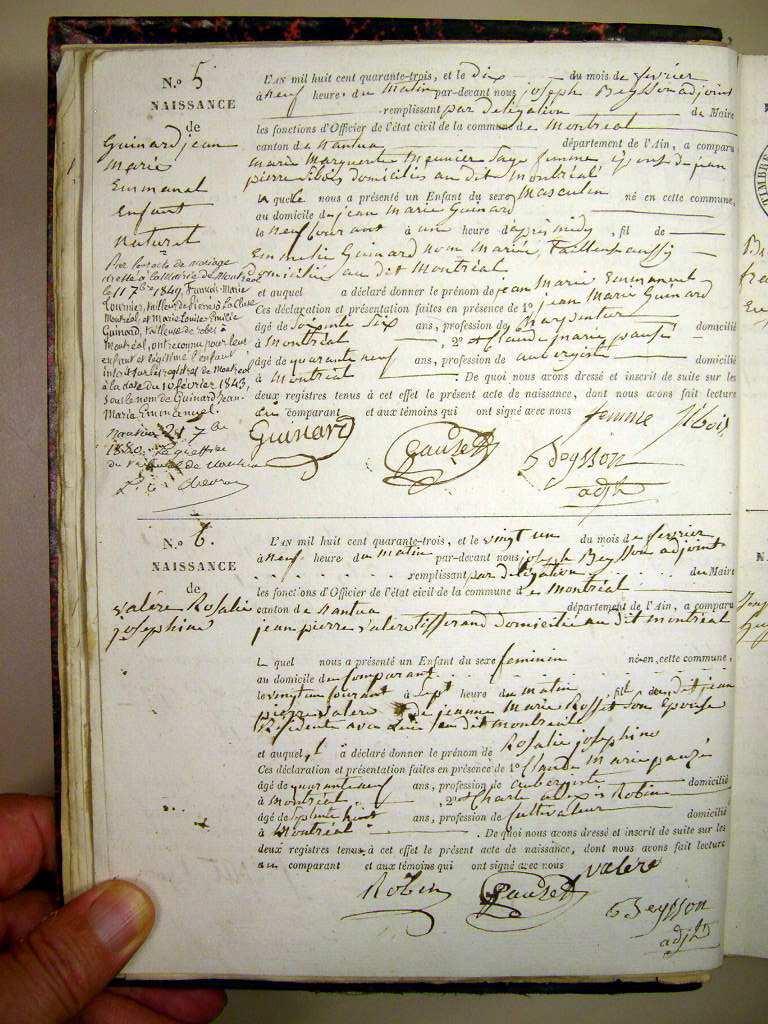 N.º 5
NAISSANCE
de
Guinard jean
marie
Emmanal
enfant
naturel
Par acte de mariage
dressé à la Mairie de Montréal
le 11 7bre 1849, François-Marie
Tournier, tailleur de pierres à La Cluse
Montréal, et Marie Louise Emilie
Guinard, tailleuse de robes à
Montréal, ont reconnu pour leur
enfant et légitimé l'enfant
inscrit sur les registres de Montréal
à la date du 10 février 1843,
sous le nom de Guinard Jean-
Marie Emmanuel.
Nantua 7bre
1880. Le greffier
du tribunal de
L'AN mil huit cent quarante-trois, et le dix du mois de fevrier
à neuf heure du matin par-devant nous joseph Beysson adjoint
remplissant par deligation du Maire
les fonctions d'Officier de l'état civil de la commune de montreal
canton de nantua département de l'Ain, a comparu
marie Marguerite Meunier sage femme Epouse de jean
pierre filbois domiciliés au dit montréal
la quele nous a présenté un Enfant du sexe masculin né en cette commune,
au domicile de jean Marie Guinard
le neuf courant à une heure daprès midy, fil de
Emmelie Guinard non mariée, Tailleuse aussy
domicilié au dit Montréal
et auquel a déclaré donner le prénom de jean Marie Emmanuel
Ces déclaration et présentation faites en présence de 1º jean Marie Guinard
âgé de soixente six ans, profession de charpentier domicilié
à montréal, 2º Claude marie pauzé
âgé de quarante neuf ans, profession de aubergiste domicilié
à montréal. De quoi nous avons dressé et inscrit de suite sur les
deux registres tenus à cet effet le présent acte de naissance, dont nous avons fait lecture
au comparant et aux témoins qui ont signé avec nous femme filbois
Guinard Pauzé Beysson
adjt
N.º 6.
NAISSANCE
de
Valére Rosalie
josephine
L'AN mil huit cent quarante-trois, et le vingt un du mois de fevrier
à neuf heure du matin par-devant nous joseph Beysson adjoint
remplissant par deligation du Maire
les fonctions d'Officier de l'état civil de la commune de montréal
canton de nantua département de l'Ain, a comparu
jean pierre valere tisserand domicilié au dit montréal
Le quel nous a présenté un Enfant du sexe feminin né en cette commune,
au domicile du comparant
le vingt un courant à sept heure du matin, fil du dit jean
pierre valere de jeanne Marie Rosset son Epouse
Residente avec lui au dit montreal
et auquel il a déclaré donner le prénom de Rosalie josephine
Ces déclaration et présentation faites en présence de 1º Claude Marie pauzé
âgé de quarante neuf ans, profession de aubergiste domicilié
à montréal, 2º Charle alexis Robin
âgé de septente huit ans, profession de Cultivateur domicilié
à Montréal. De quoi nous avons dressé et inscrit de suite sur les
deux registres tenus à cet effet le présent acte de naissance, dont nous avons fait lecture
au comparant et aux témoins qui ont signé avec nous valere
Robin Pauzé Beysson
adjt